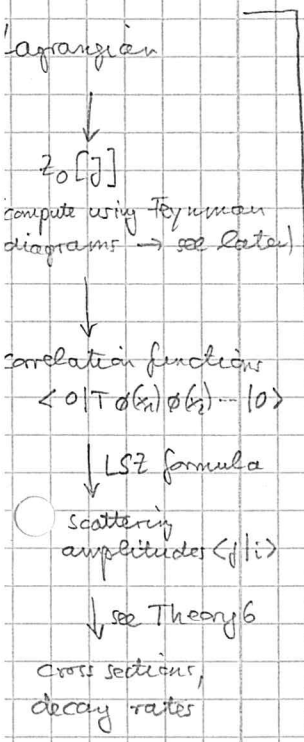 Lagrangian
Z₀[J]
compute using Feynman
diagrams → see later)
correlation functions
<0|T φ(x₁) φ(x₂) ... |0>
LSZ formula
scattering
amplitudes <f|i>
see Theory 6
cross sections,
decay rates